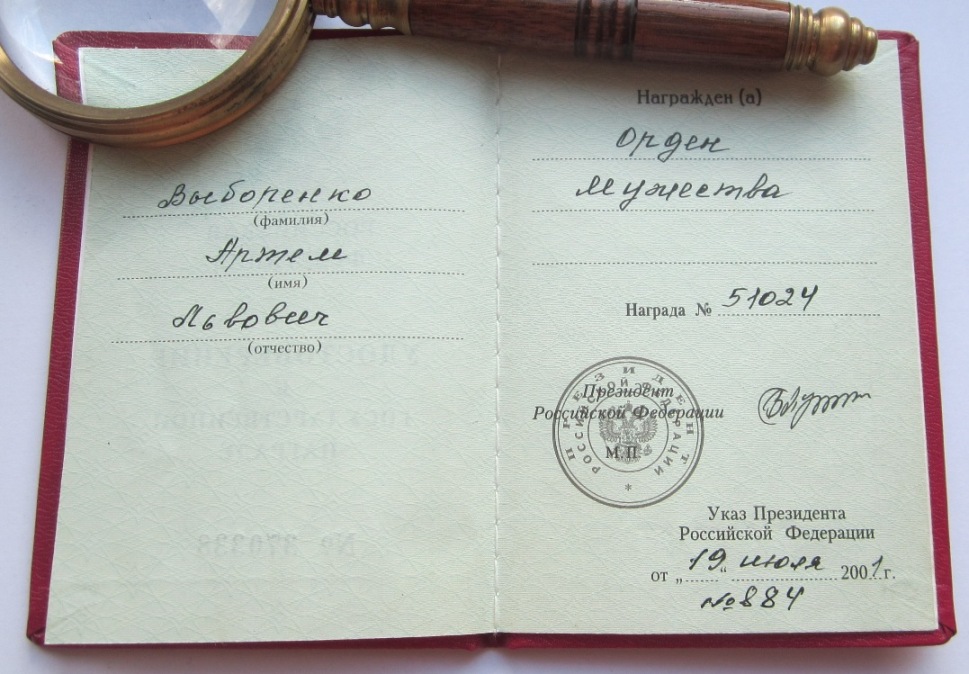 Выборенко
(фамилия)
Артем
(имя)
Львович
(отчество)
Награжден (а)
Орден
Мужества
Награда № 51024
ПРЕЗИДЕНТ
РОССИЙСКОЙ ФЕДЕРАЦИИ
Президент
Российской Федерации
М.П.
Указ Президента
Российской Федерации
от „19“ июля 2001 г.
№884